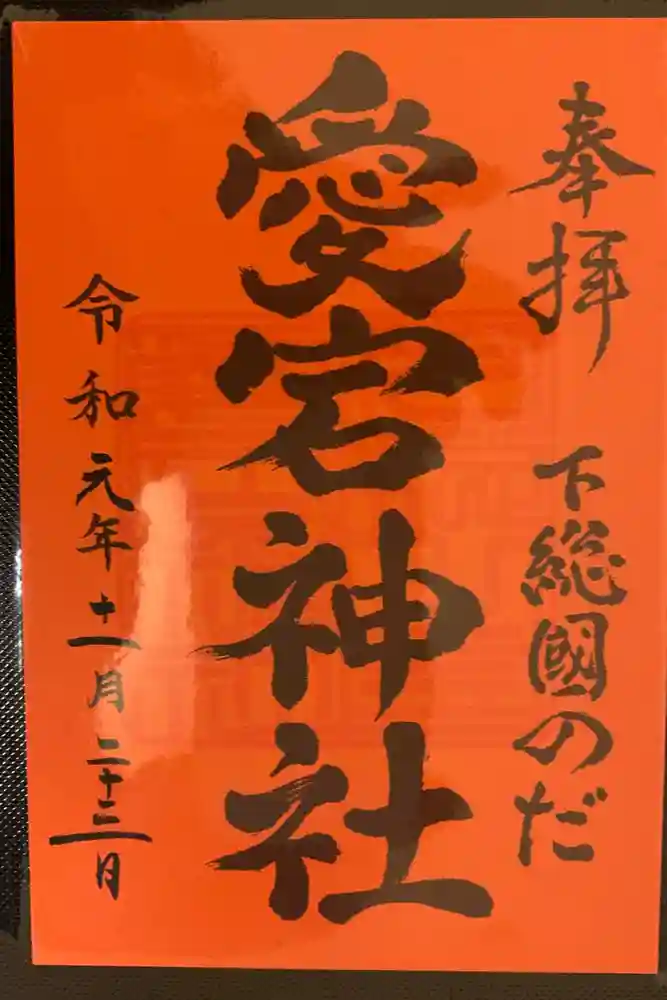 奉拝 下総國のだ
愛宕神社
令和元年十一月二十三日